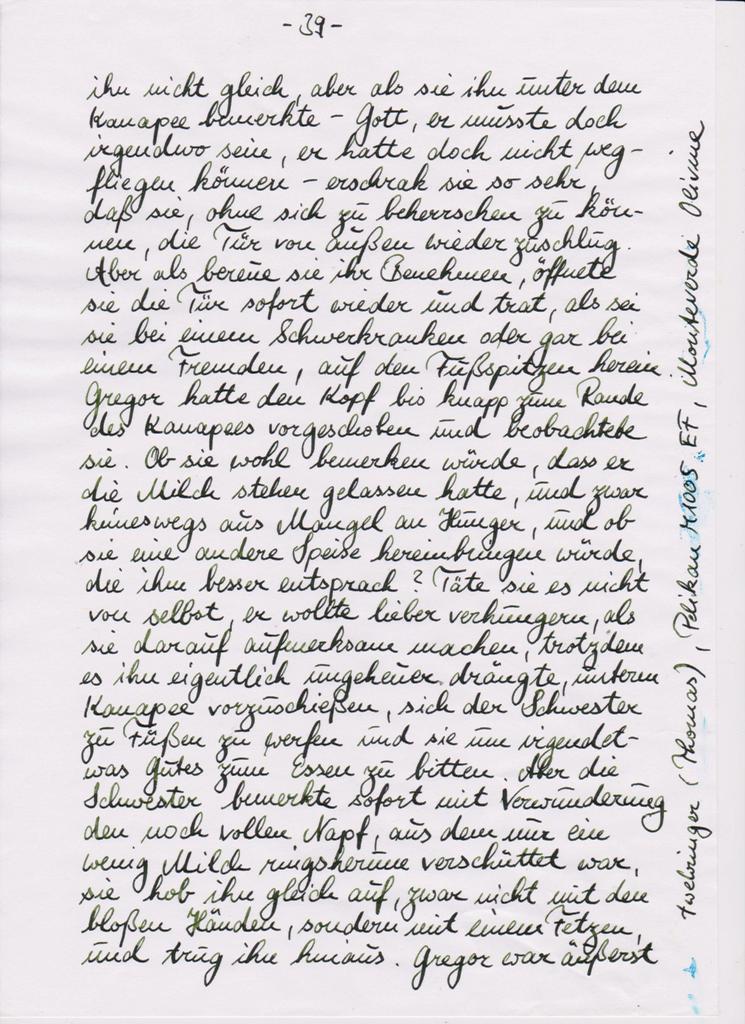 - 39 -
ihn nicht gleich, aber als sie ihn unter dem
Kanapee bemerkte - Gott, er musste doch
irgendwo sein, er hatte doch nicht weg-
fliegen können - erschrak sie so sehr,
daß sie, ohne sich zu beherrschen zu kön-
nen, die Tür von außen wieder zuschlug.
Aber als bereue sie ihr Benehmen, öffnete
sie die Tür sofort wieder und trat, als sei
sie bei einem Schwerkranken oder gar bei
einem Fremden, auf den Fußspitzen herein
Gregor hatte den Kopf bis knapp zum Rande
des Kanapees vorgeschoben und beobachtete
sie. Ob sie wohl bemerken würde, dass er
die Milch stehen gelassen hatte, und zwar
keineswegs aus Mangel an Hunger, und ob
sie eine andere Speise hereinbringen würde,
die ihm besser entsprach? Täte sie es nicht
von selbst, er wollte lieber verhungern, als
sie darauf aufmerksam machen, trotzdem
es ihn eigentlich ungeheuer drängte, unterm
Kanapee vorzuschießen, sich der Schwester
zu Füßen zu werfen und sie um irgendet-
was Gutes zum Essen zu bitten. Aber die
Schwester bemerkte sofort mit Verwunderung
den noch vollen Napf, aus dem nur ein
wenig Milch ringsherum verschüttet war,
sie hob ihn gleich auf, zwar nicht mit den
bloßen Händen, sondern mit einem Fetzen,
und trug ihn hinaus. Gregor war äußerst
(Thomas), Pelikan M1005 EF, Monteverde Olivine